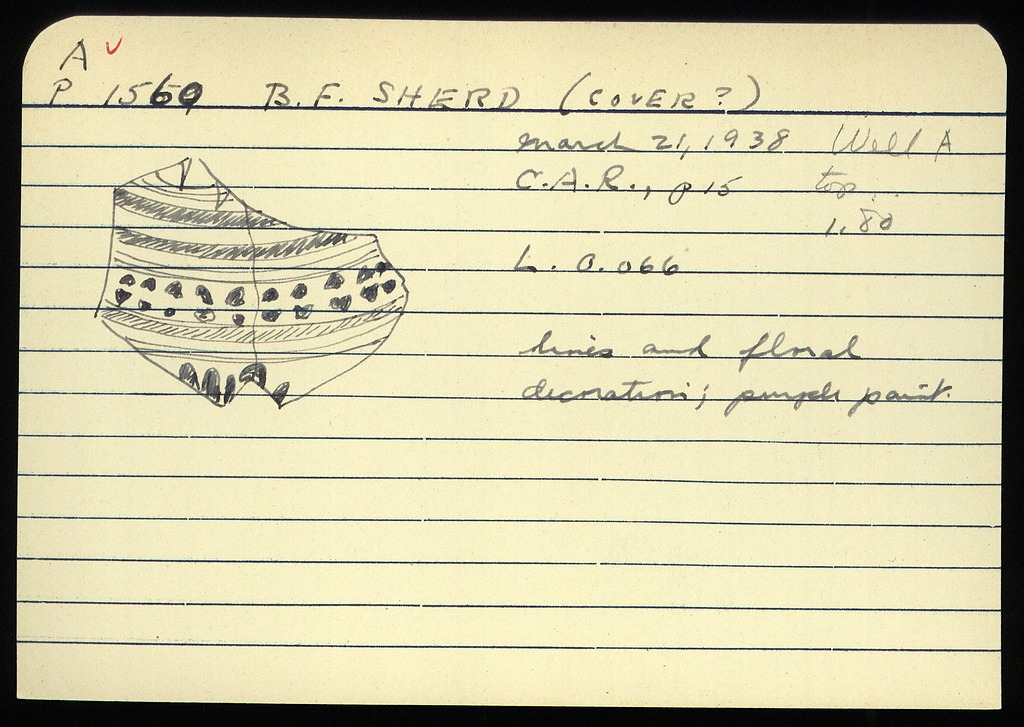 A ✓
P 1560 B.F. SHERD (COVER?)
March 21, 1938 Well A
C.A.R., p 15 top
1.80
L. 0.066
lines and floral
decoration; purple paint.